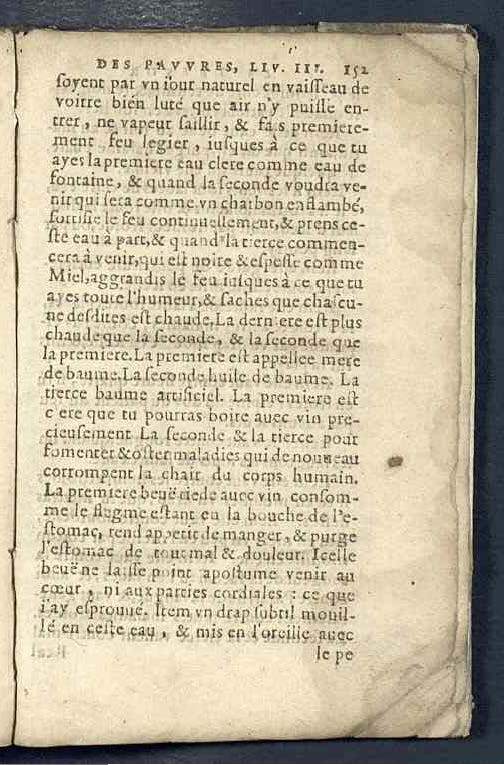 DES PAVVRES, LIV. III. 152
ſoyent par vn iour naturel en vaiſſeau de
voirre bien luté que air n'y puiſſe en-
trer, ne vapeur ſaillir, & fais premiere-
ment feu legier, iuſques à ce que tu
ayes la premiere eau clere comme eau de
fontaine, & quand la ſeconde voudra ve-
nir qui ſera comme vn charbon enflambé,
fortifie le feu continuellement, & prens ce-
ſte eau à part, & quand la tierce commen-
cera à venir, qui eſt noire & eſpeſſe comme
Miel, aggrandis le feu iuſques à ce que tu
ayes toute l'humeur, & ſaches que chaſcu-
ne deſdites eſt chaude, La derniere eſt plus
chaude que la ſeconde, & la ſeconde que
la premiere. La premiere eſt appellee mere
de baume. La ſeconde huile de baume. La
tierce baume artificiel. La premiere eſt
c ere que tu pourras boire auec vin pre-
cieuſement La ſeconde & la tierce pour
fomenter & oſter maladies qui de nouueau
corrompent la chair du corps humain.
La premiere beuë auec vin conſom-
me le flegme eſtant en la bouche de l'e-
ſtomac, rend appetit de manger, & purge
l'eſtomac de tout mal & douleur. Icelle
beuë ne laiſſe point apoſtume venir au
cœur, ni aux parties cordiales : ce que
i'ay eſprouué. Item vn drap ſubtil mouil-
lé en ceſte eau, & mis en l'oreille auec
le pe